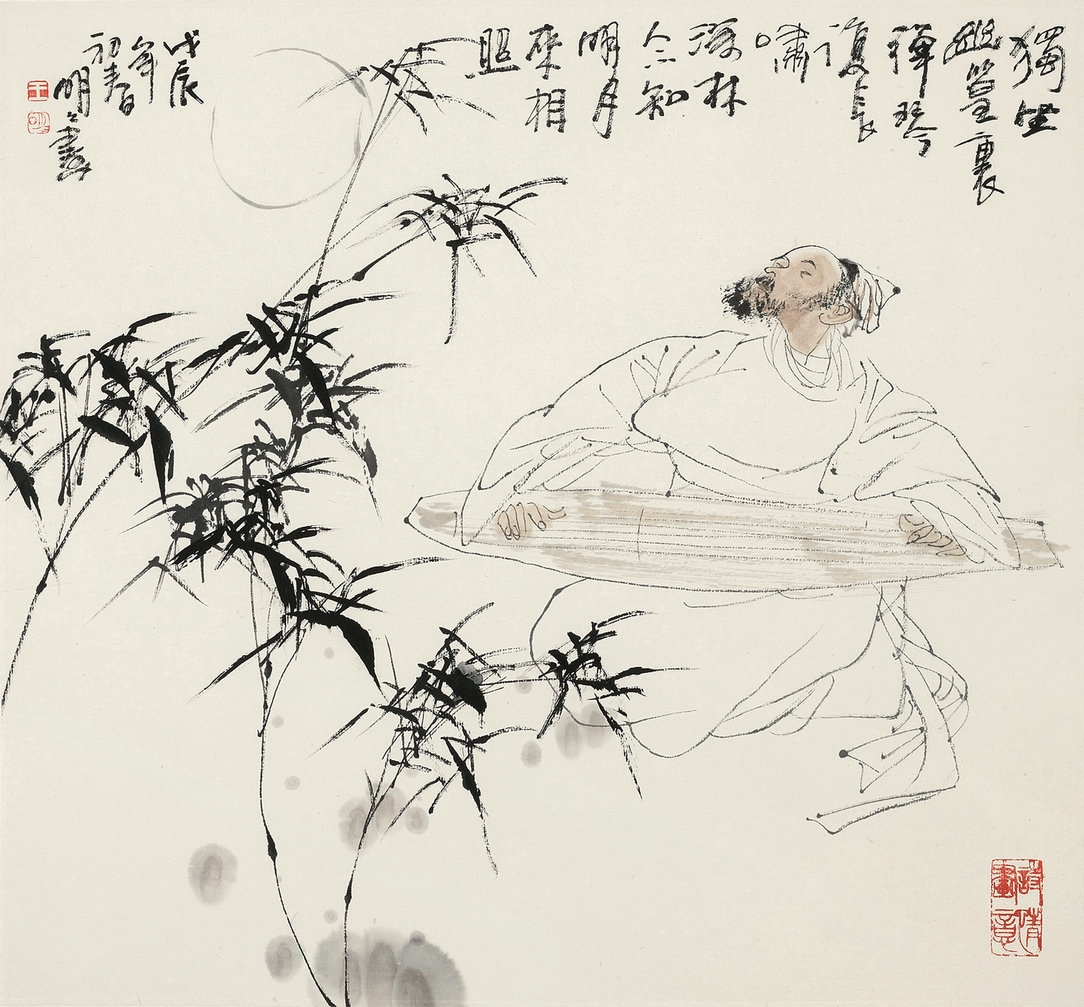 獨坐
幽篁裏
彈琴
復長
嘯
深林
人不知
明月
來相
照
戊辰
年
初春
明明畫
王
詩情
畫意